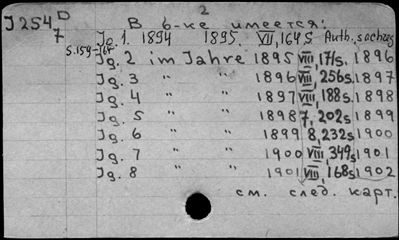 2
J 254 D/7
В б-ке имеется:
Jg. 1. 1894 1895. XII, 164 S Auth., sachreg
S. 159-164
Jg. 2 im Jahre 1895 VIII, 171 s. 1896
Jg. 3 " " 1896 VIII, 256 s. 1897
Jg. 4 " " 1897 VIII, 188 s. 1898
Jg. 5 " " 1898 7, 202 s. 1899
Jg. 6 " " 1899 8, 232 s. 1900
Jg. 7 " " 1900 VIII, 349 s. 1901
Jg. 8 " " 1901 VIII, 168 s. 1902
см. след. карт.